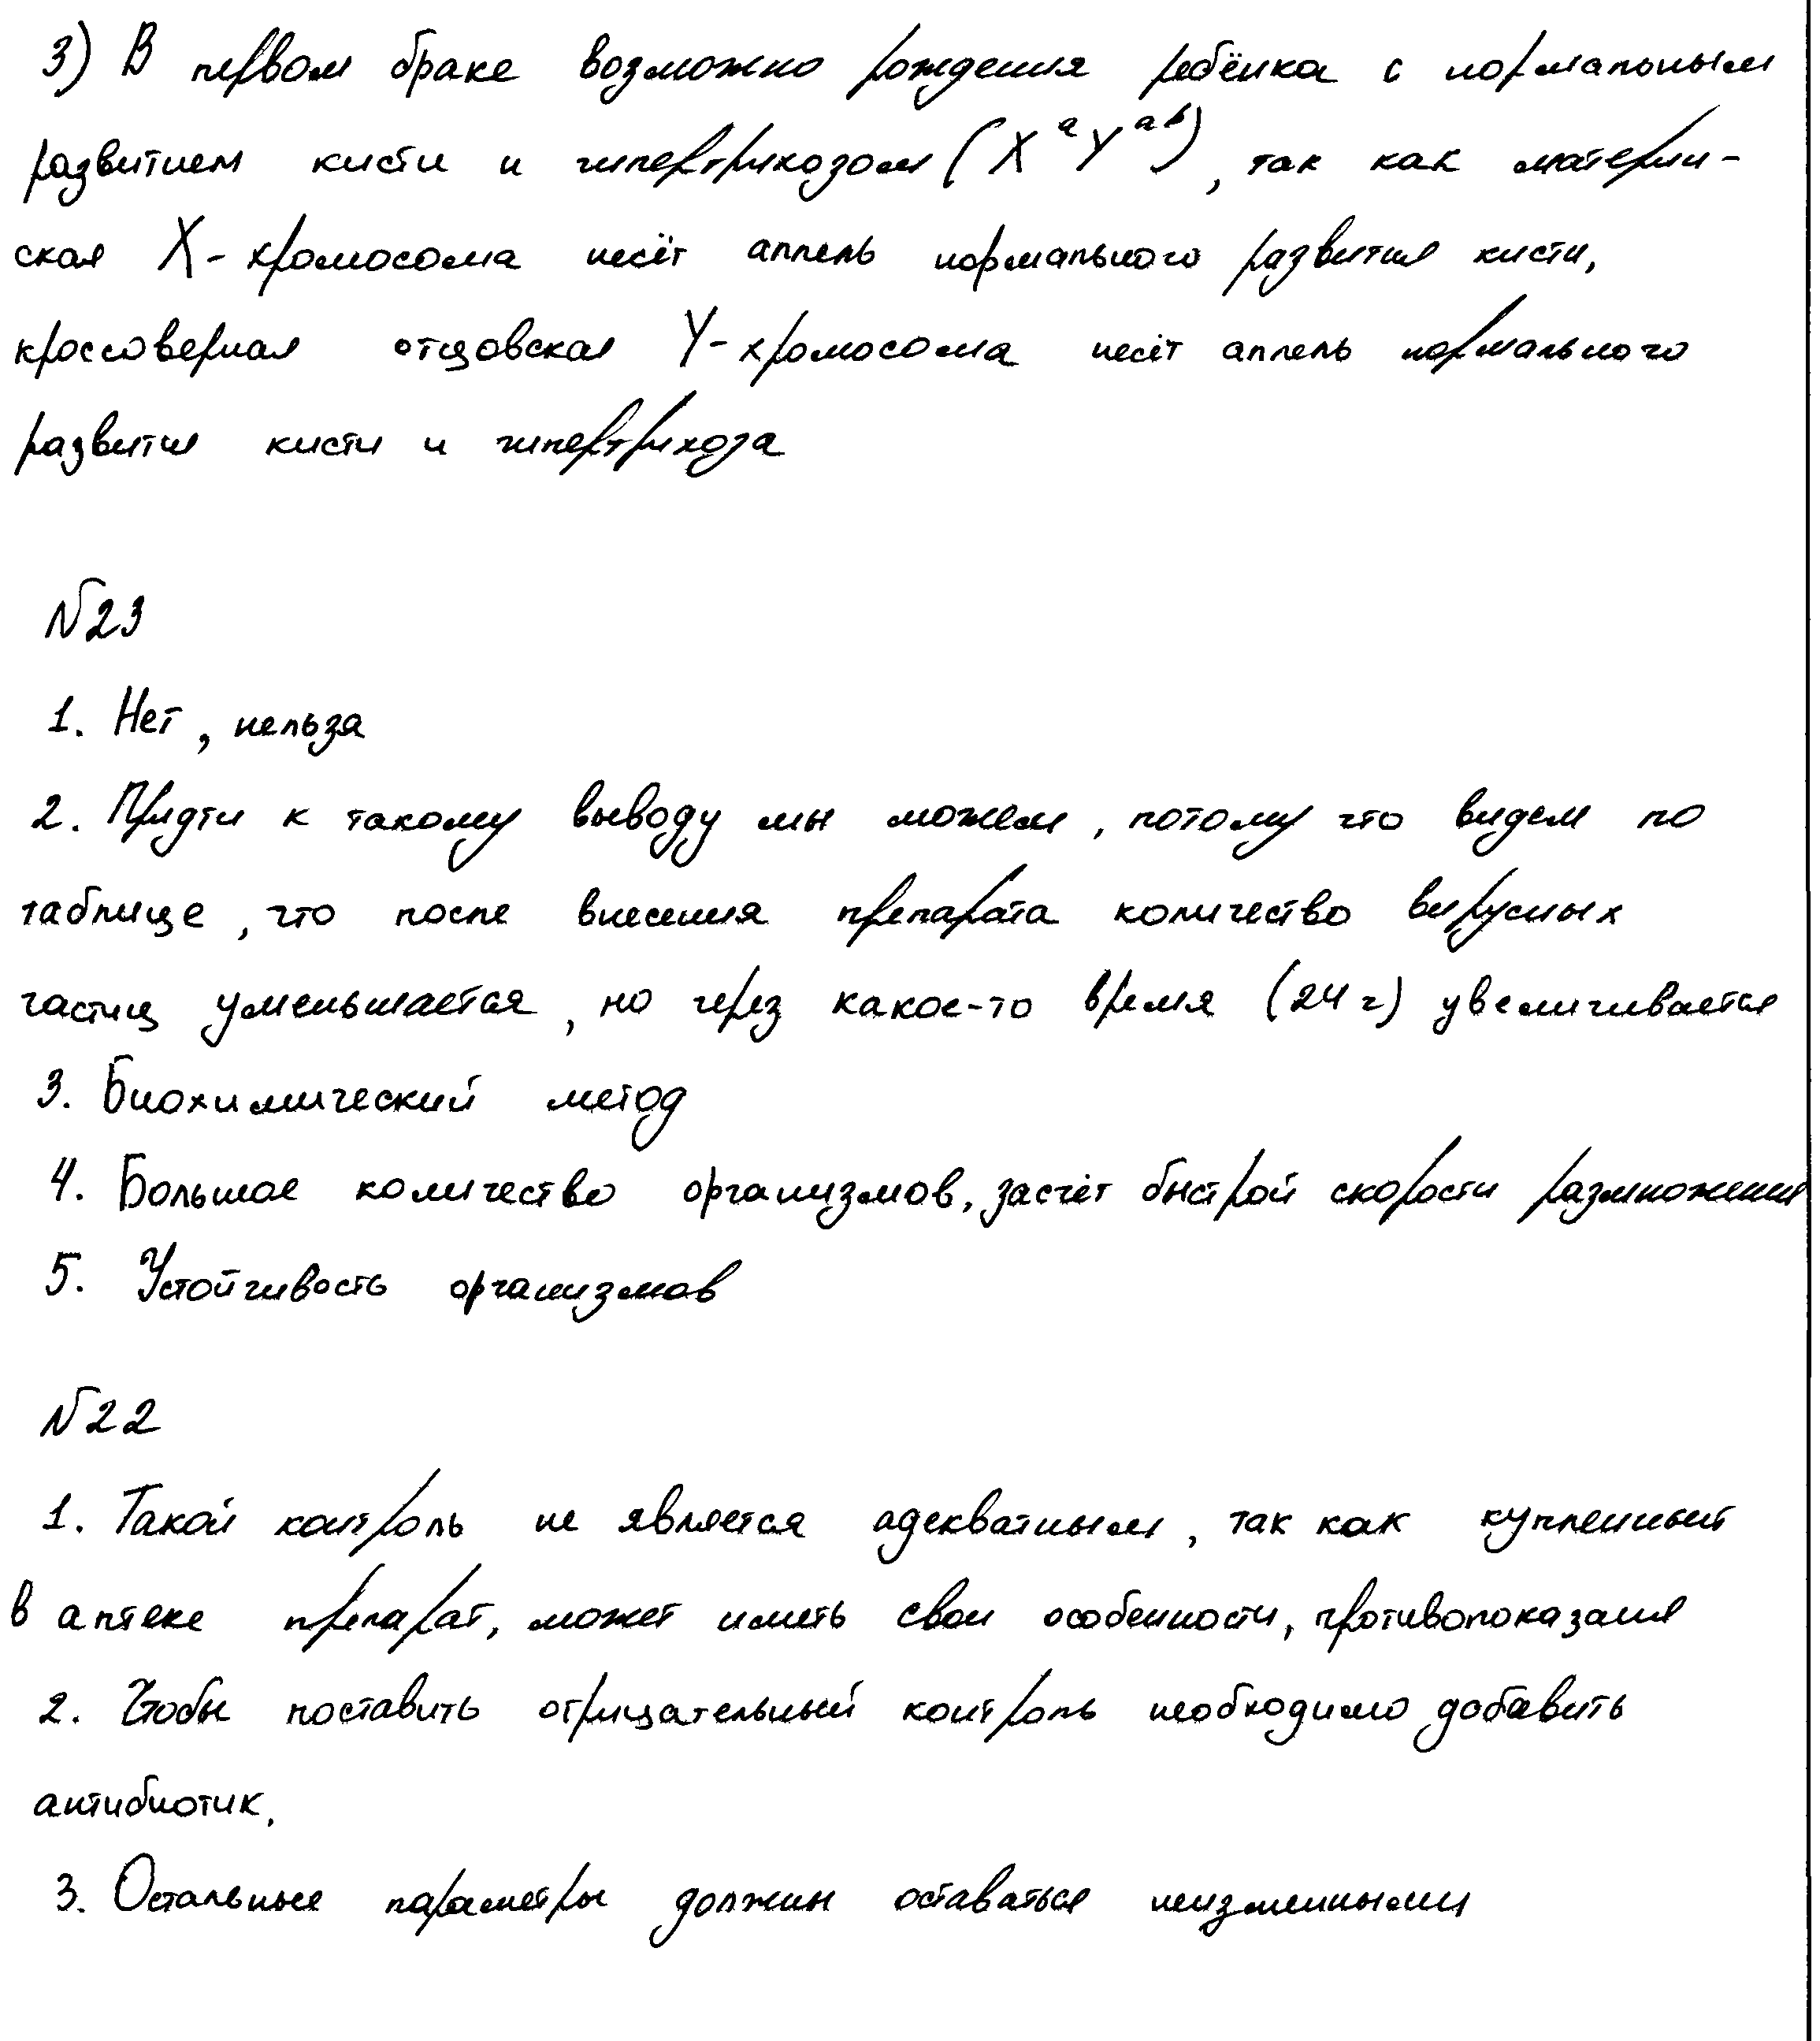 3) В первом браке возможно рождения ребёнка с нормальным
развитием кисти и гипертрихозом (XᵃYᵃᵇ), так как материн-
ская X-хромосома несёт аллель нормального развития кисти,
кроссоверная отцовская Y-хромосома несёт аллель нормального
развития кисти и гипертрихоза
№23
1. Нет, нельзя
2. Придти к такому выводу мы можем, потому что видем по
таблице, что после внесения препарата количество вирусных
частиц уменьшается, но через какое-то время (24 ч) увеличивается
3. Биохимический метод
4. Большое количество организмов, засчёт быстрой скорости размножения
5. Устойчивость организмов
№22
1. Такой контроль не является адекватным, так как купленный
в аптеке препарат, может иметь свои особенности, противопоказания
2. Чтобы поставить отрицательный контроль необходимо добавить
антибиотик.
3. Остальные параметры должны оставаться неизменными